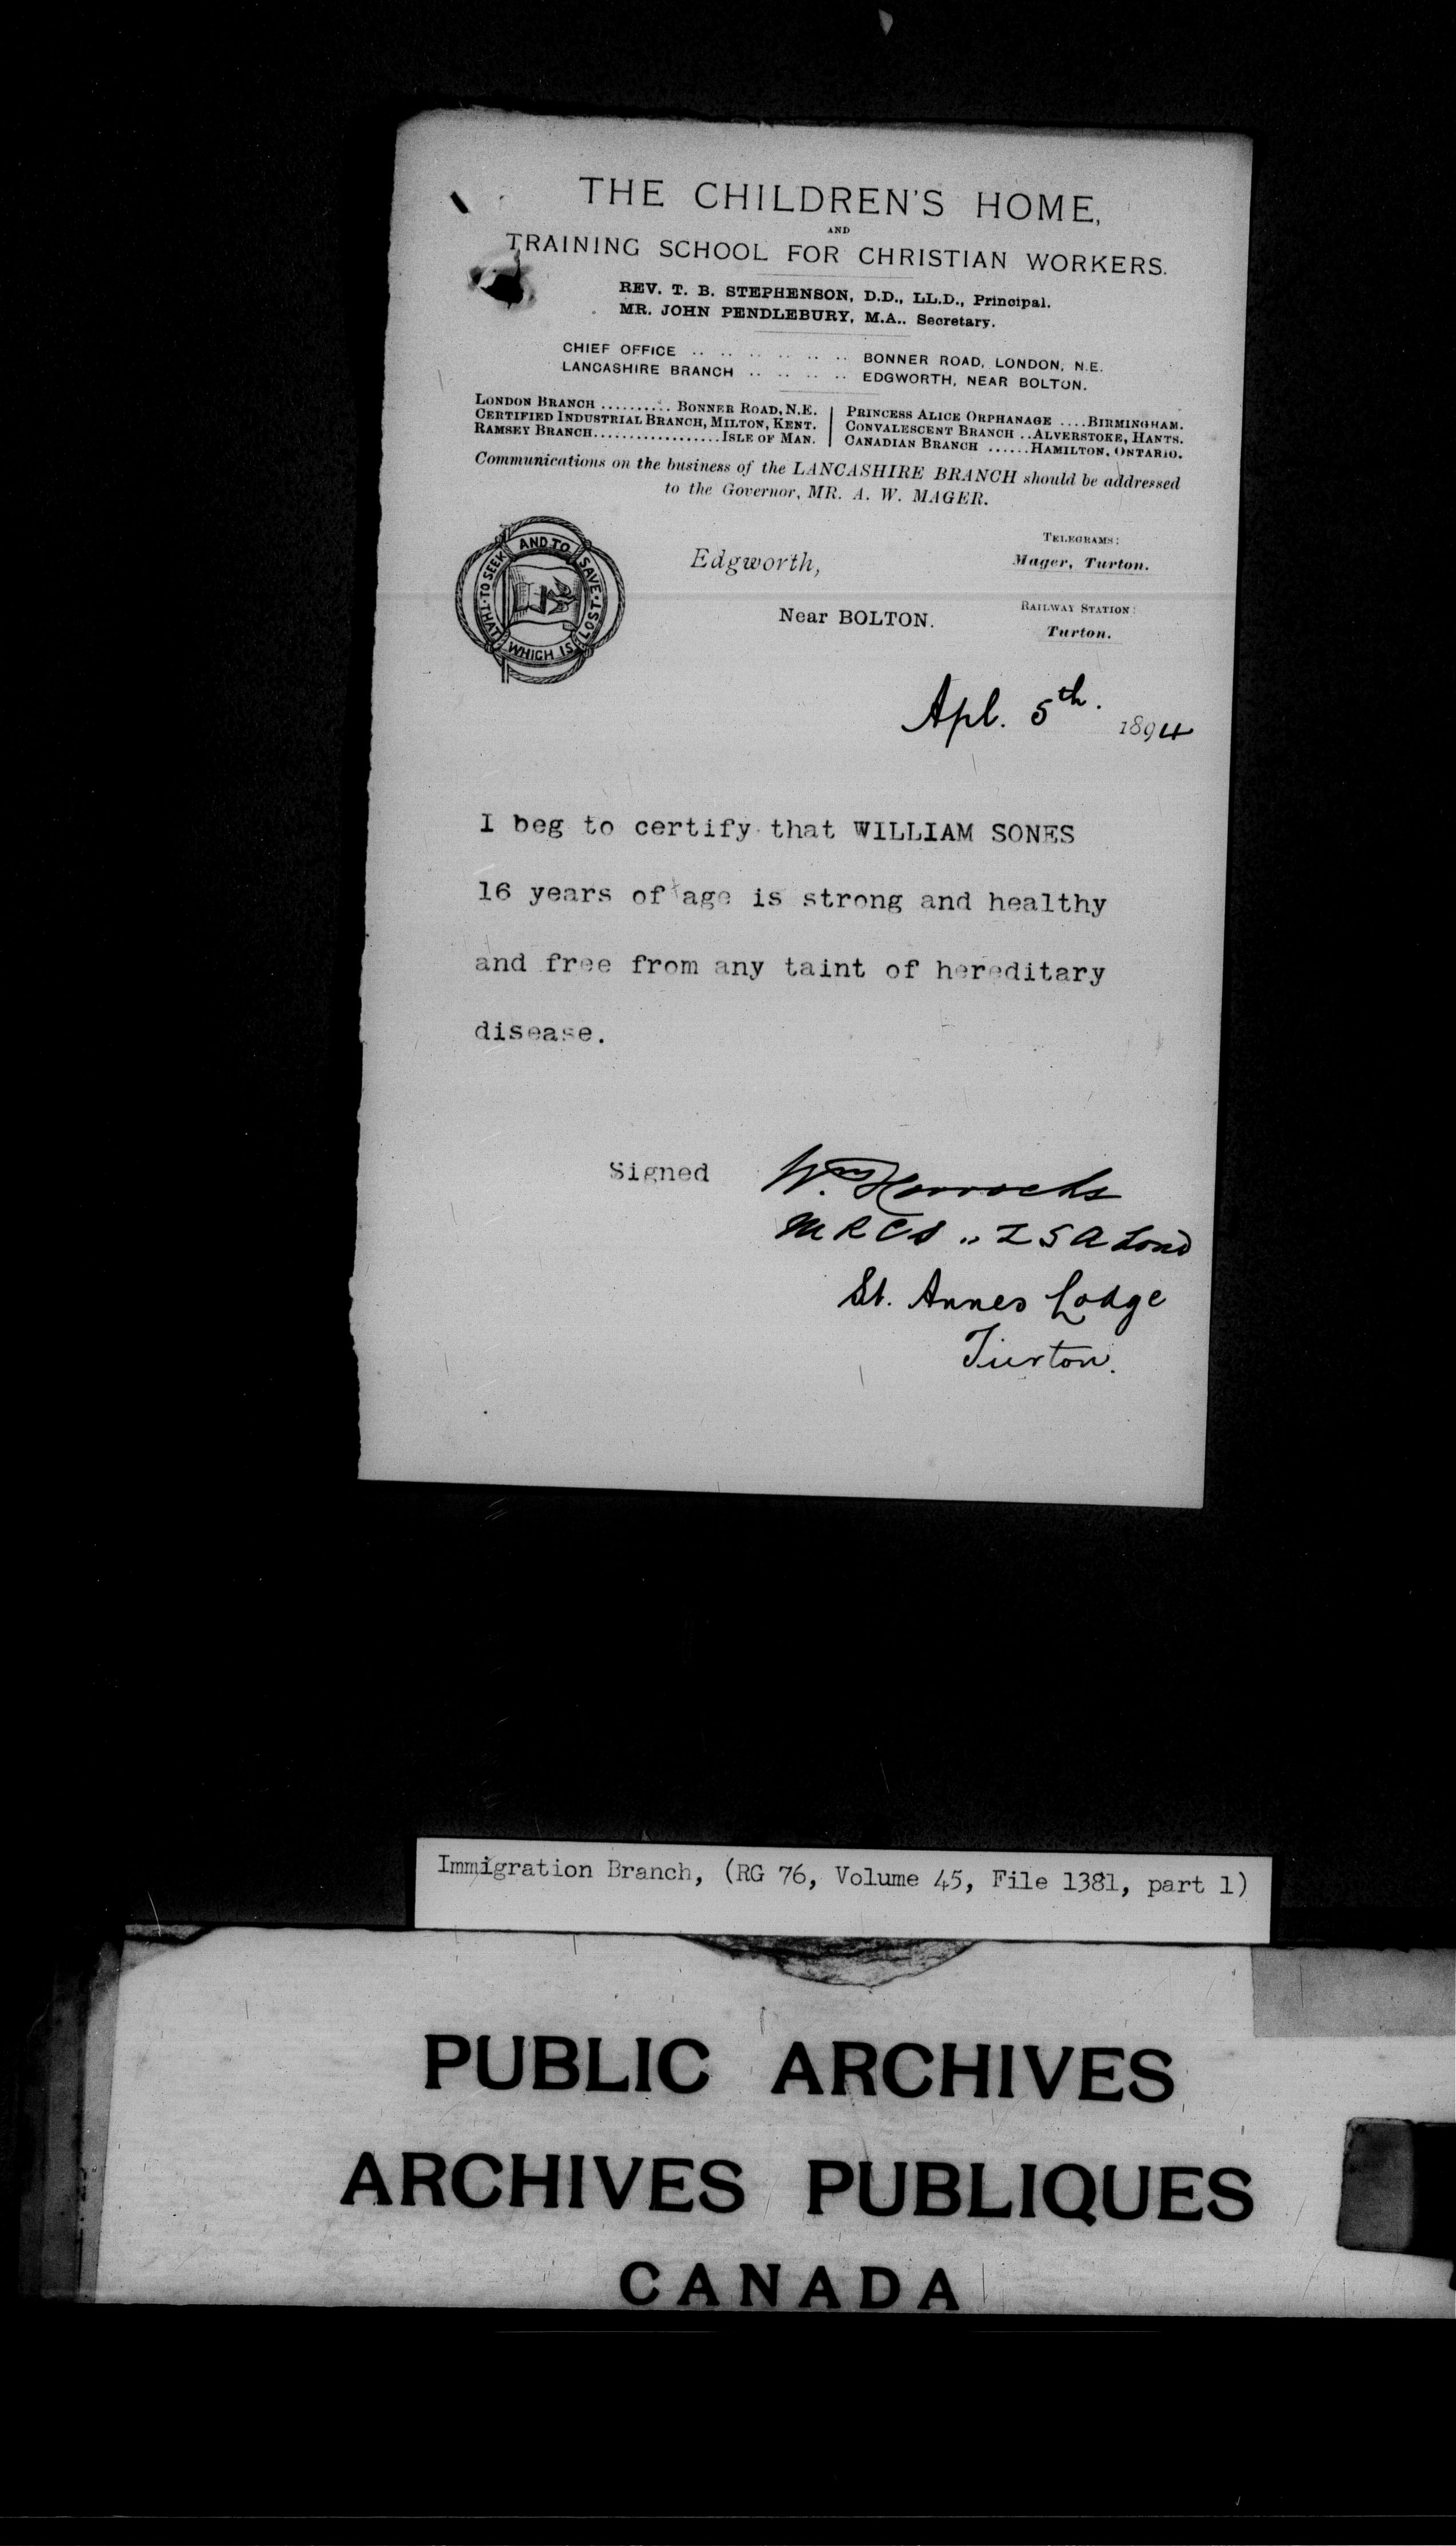 THE CHILDREN'S HOME,
AND
TRAINING SCHOOL FOR CHRISTIAN WORKERS.
REV. T. B. STEPHENSON, D.D., LL.D., Principal.
MR. JOHN PENDLEBURY, M.A.. Secretary.
CHIEF OFFICE .. .. .. .. .. .. BONNER ROAD, LONDON, N.E.
LANCASHIRE BRANCH .. .. .. .. EDGWORTH, NEAR BOLTON.
LONDON BRANCH .......... BONNER ROAD, N.E.
CERTIFIED INDUSTRIAL BRANCH, MILTON, KENT.
RAMSEY BRANCH..................ISLE OF MAN.
PRINCESS ALICE ORPHANAGE ....BIRMINGHAM.
CONVALESCENT BRANCH ..ALVERSTOKE, HANTS.
CANADIAN BRANCH ......HAMILTON, ONTARIO.
Communications on the business of the LANCASHIRE BRANCH should be addressed
to the Governor, MR. A. W. MAGER.
TO SEEK AND TO SAVE THAT WHICH IS LOST
Edgworth,
Near BOLTON.
TELEGRAMS:
Mager, Turton.
RAILWAY STATION:
Turton.
Apl. 5th. 1894
I beg to certify that WILLIAM SONES
16 years of age is strong and healthy
and free from any taint of hereditary
disease.
Signed Wm Horrocks
MRCS " LSA Lond
St. Annes Lodge
Turton.
Immigration Branch, (RG 76, Volume 45, File 1381, part 1)
PUBLIC ARCHIVES
ARCHIVES PUBLIQUES
CANADA